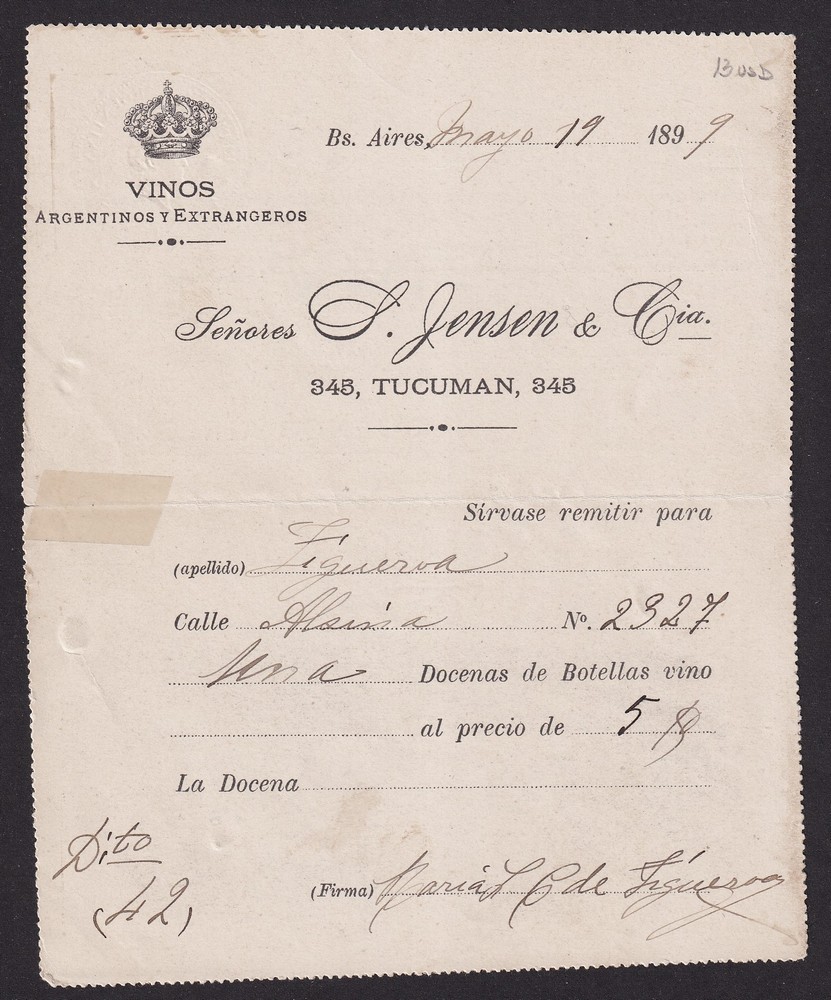 13 USD
Bs. Aires, Mayo 19 1899
VINOS
ARGENTINOS Y EXTRANGEROS
Señores S. Jensen & Cia.
345, TUCUMAN, 345
Sírvase remitir para
(apellido) Figueroa
Calle Alsina No. 2327
Una Docenas de Botellas vino
al precio de 5 $
La Docena
D.to
(42)
(Firma) Maria L C de Figueroa